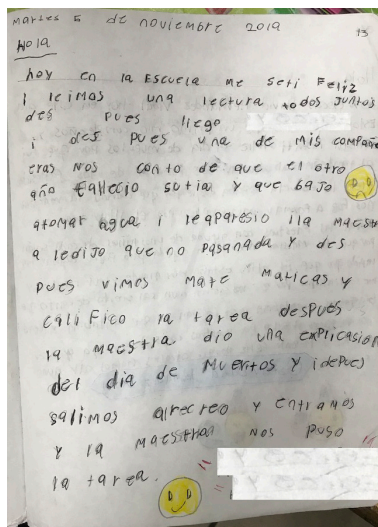 Martes 5 de noviembre 2019
13
Hola
hoy en la Escuela me seti Feliz
i leimos una lectura todos juntos
des pues llego
i des pues una de mis compañe
eras nos conto de que el otro
año fallecio sutia y que bajo
atomar agua i leaparesio ila maestr
a ledijo que no pasanada y des
pues vimos mate maticas y
califico la tarea despues
la maestra dio una explicasion
del dia de Muertos y idepues
salimos alrecreo y entramos
y la maestroa nos puso
la tarea.